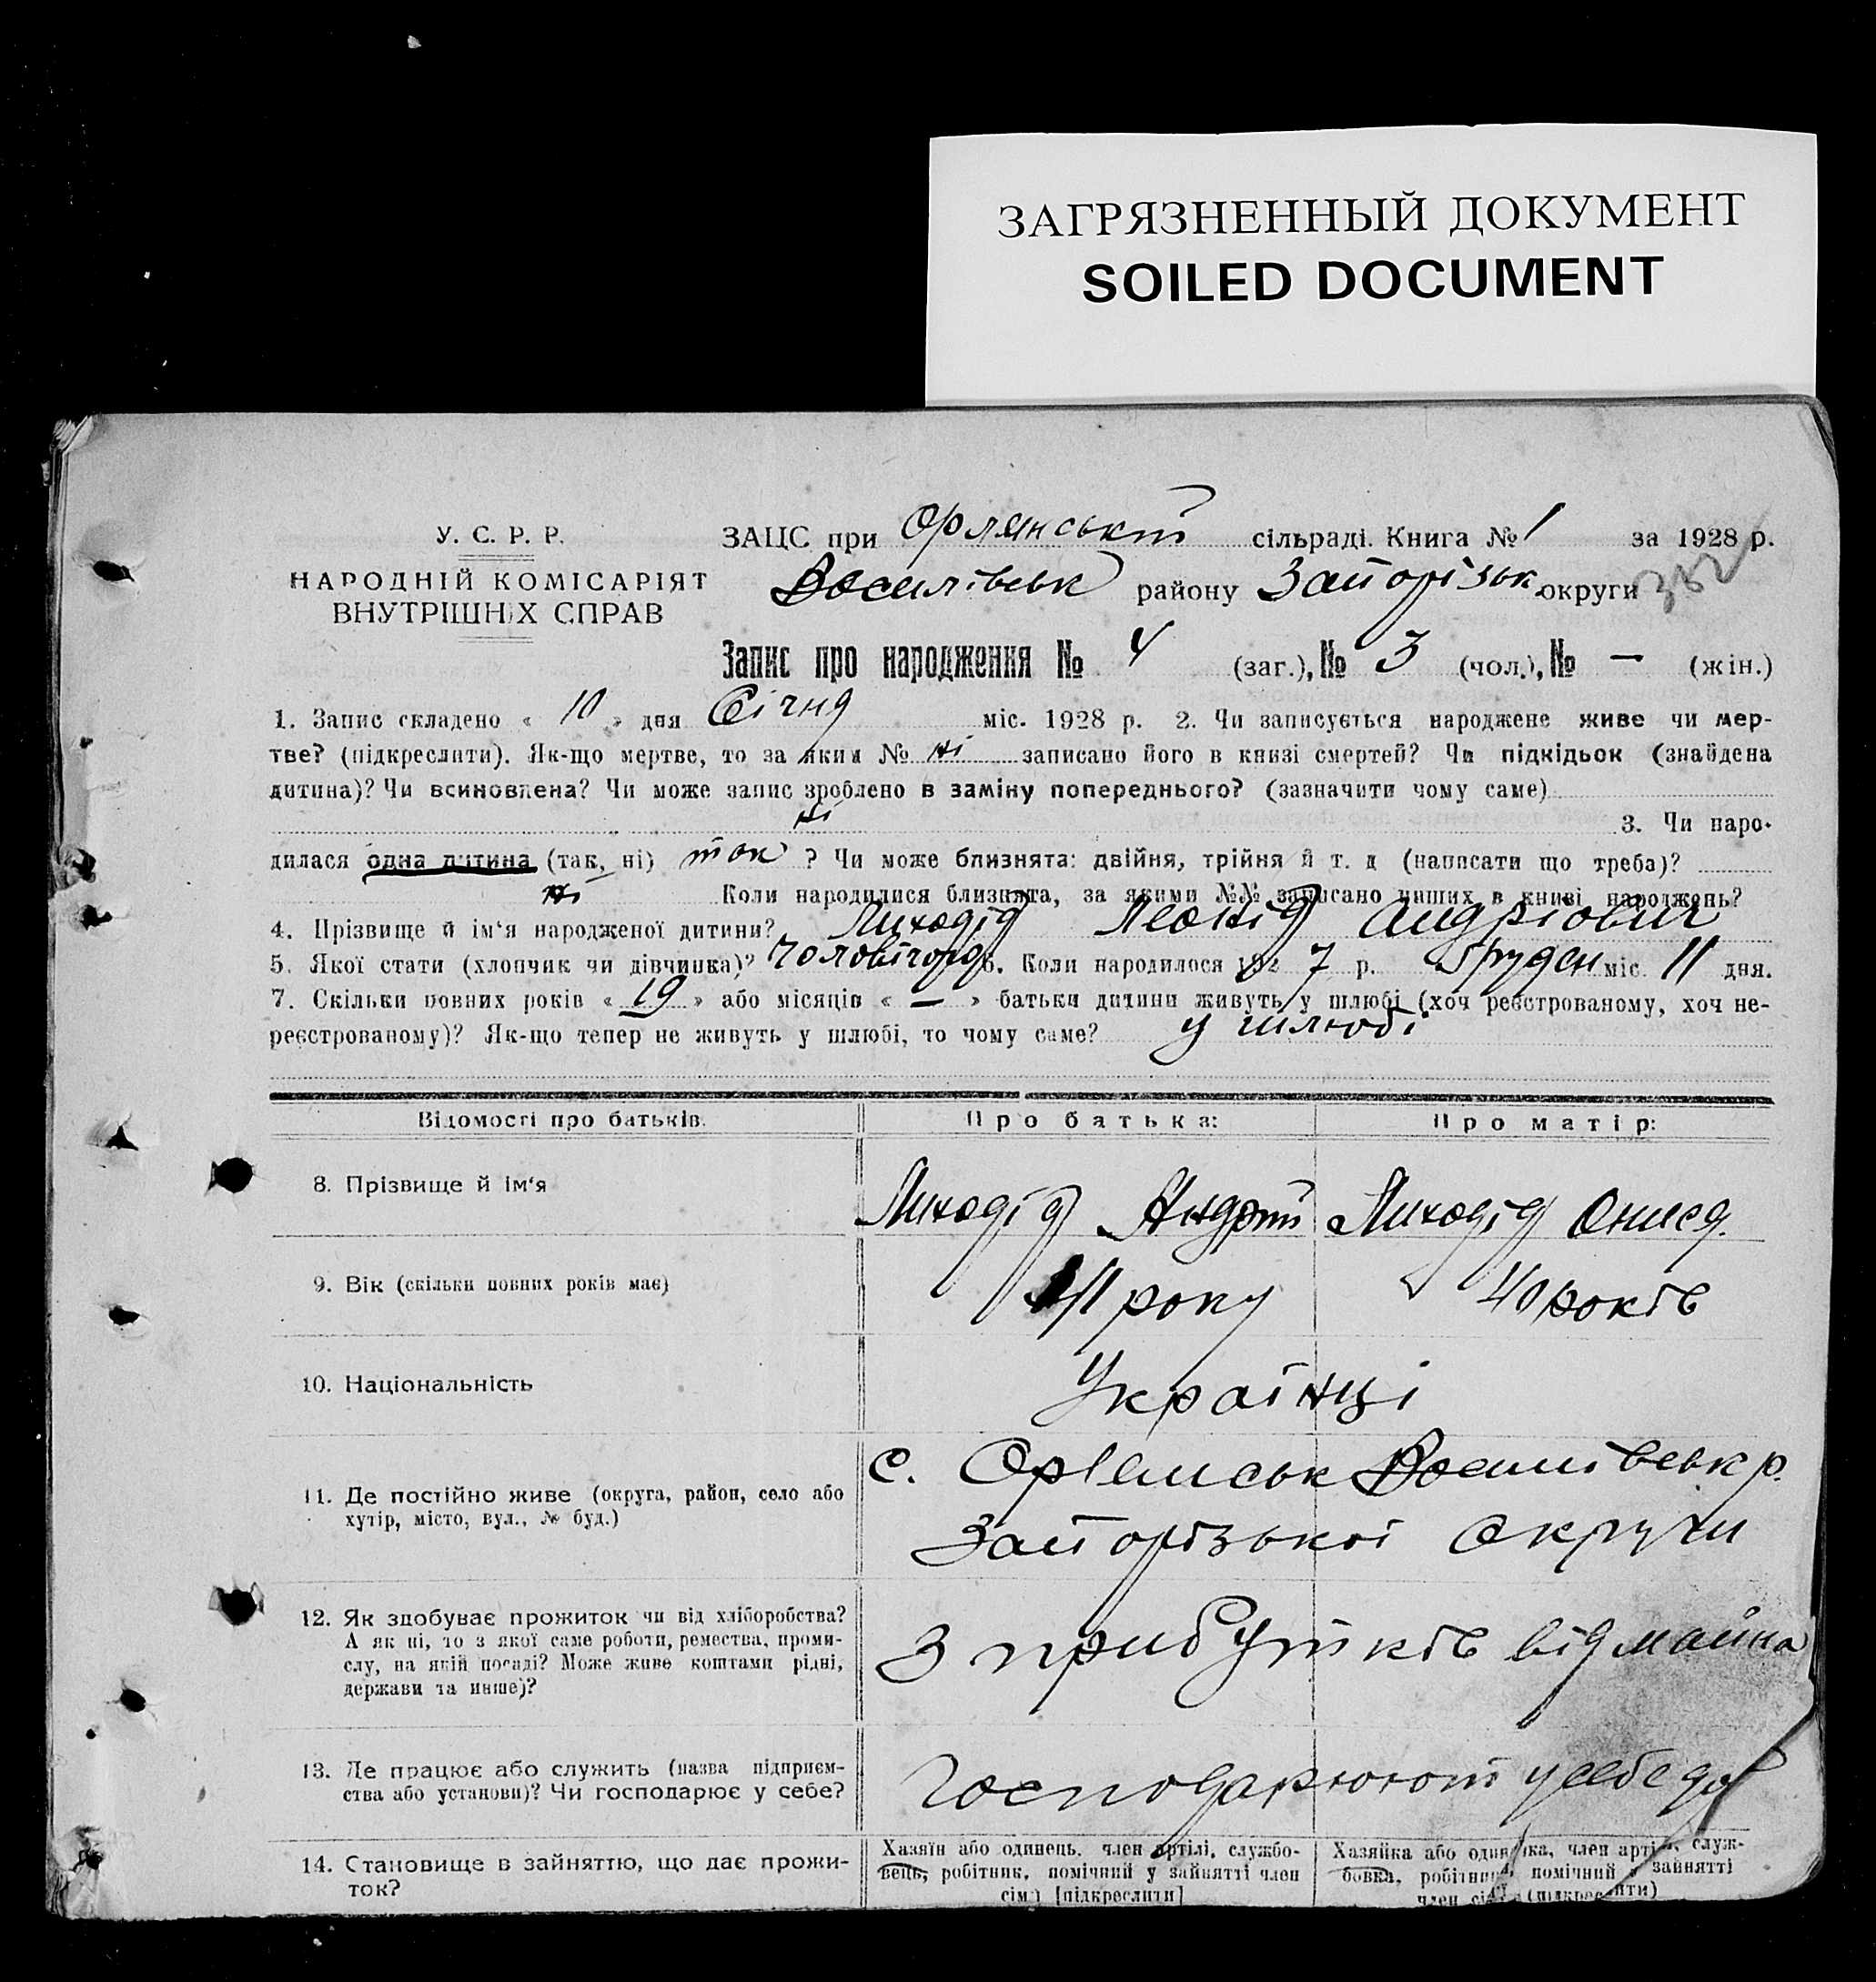 ЗАГРЯЗНЕННЫЙ ДОКУМЕНТ
SOILED DOCUMENT
У. С. Р. Р.
НАРОДНІЙ КОМІСАРІЯТ
ВНУТРІШНІХ СПРАВ
ЗАЦС при Орлянській сільраді. Книга № 1 за 1928 р.
Василівськ району Запорізьк округи
Запис про народження № 4 (заг.), № 3 (чол.), № — (жін.)
1. Запис складено « 10 » дня Січня міс. 1928 р. 2. Чи записується народжене живе чи мер-
тве? (підкреслити). Як-що мертве, то за яким № ні записано його в книзі смертей? Чи підкідьок (знайдена
дитина)? Чи всиновлена? Чи може запис зроблено в заміну попереднього? (зазначити чому саме)
ні 3. Чи наро-
дилася одна дитина (так, ні) так ? Чи може близнята: двійня, трійня й т. д (написати що треба)?
ні Коли народилися близнята, за якими №№ записано инших в книзі народжень?
4. Прізвище й ім'я народженої дитини? Лиходід Леонід Андріович
5. Якої стати (хлопчик чи дівчинка)? 6. Коли народилося 192 7 р. Грудень міс. 11 дня.
7. Скільки повних років « 19 » або місяців « — » батьки дитини живуть у шлюбі (хоч реєстрованому, хоч не-
реєстрованому)? Як-що тепер не живуть у шлюбі, то чому саме? у шлюбі
Відомості про батьків. Про батька: Про матір:
8. Прізвище й ім'я Лиходід Андрій Лиходід Онисд.
9. Вік (скільки повних років має) 41 року 40 років
10. Національність Українці
11. Де постійно живе (округа, район, село або
хутір, місто, вул., № буд.)
с. Орлянськ Василівськ р.
Запорізької округи
12. Як здобуває прожиток чи від хліборобства?
А як ні, то з якої саме роботи, ремества, проми-
слу, на якій посаді? Може живе коштами рідні,
держави та инше)?
З прибутків від майна
13. Де працює або служить (назва підприєм-
ства або установи)? Чи господарює у себе?
Господарюють у себе
14. Становище в зайняттю, що дає прожи-
ток?
Хазяїн або одинець, член артілі, службо-
вець, робітник, помічний у зайнятті член
сім'ї [підкреслити]
Хазяйка або одиначка, член артілі, служ-
бовка, робітниця, помічний у зайнятті
член сім'ї (підкреслити)